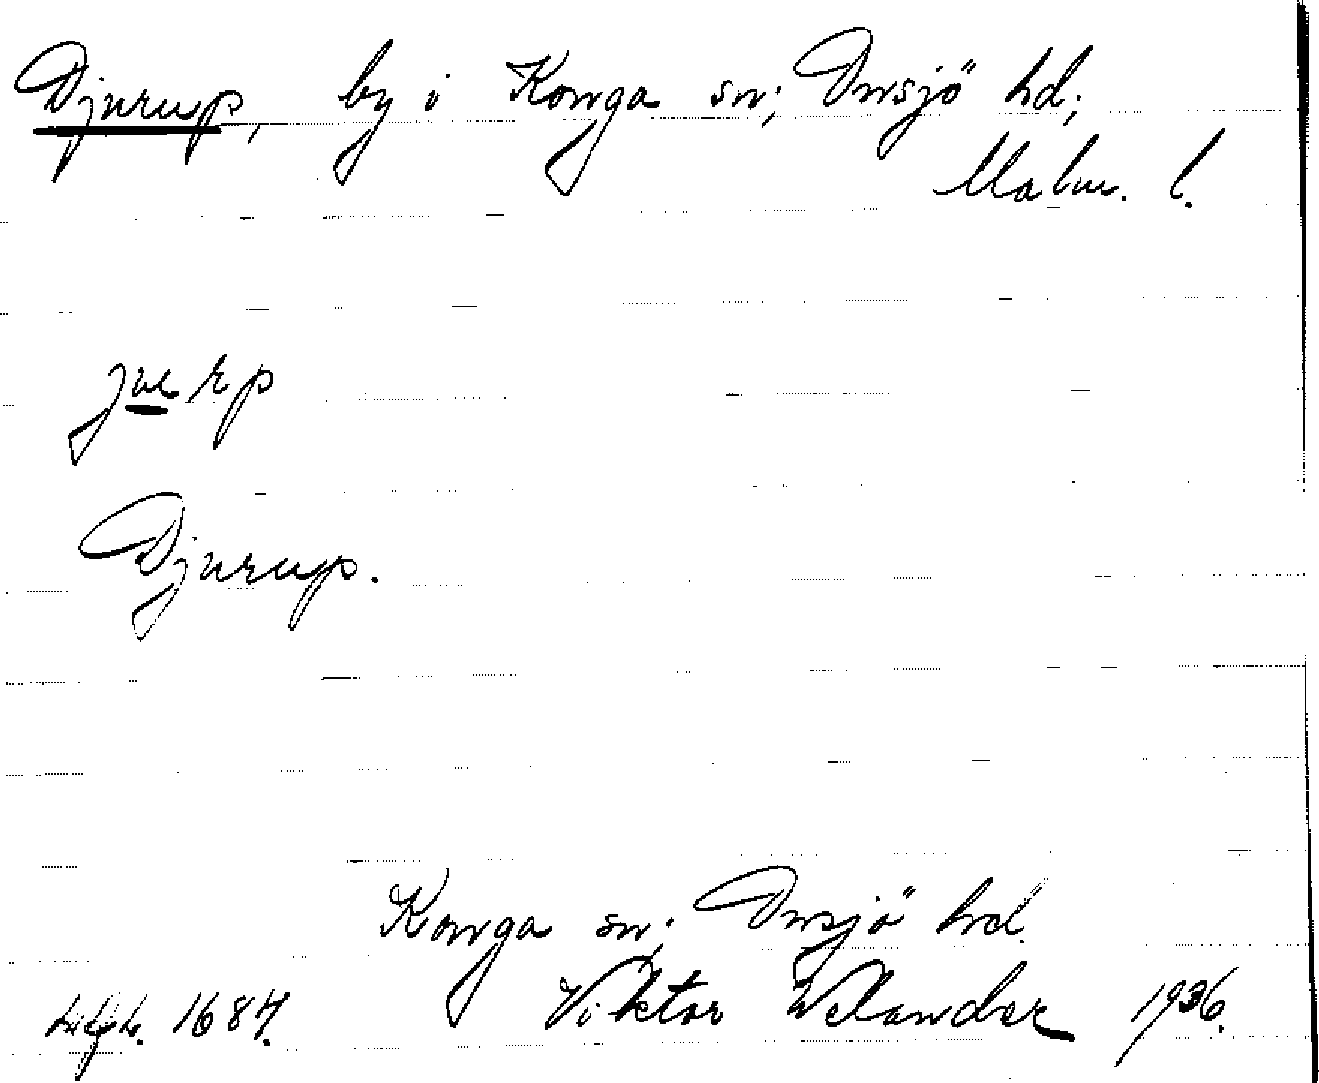 Djurup, by i Konga sn; Onsjö hd;
Malm. l.
Djurup.
Konga sn; Onsjö hd.
1684. Viktor Welander 1936.